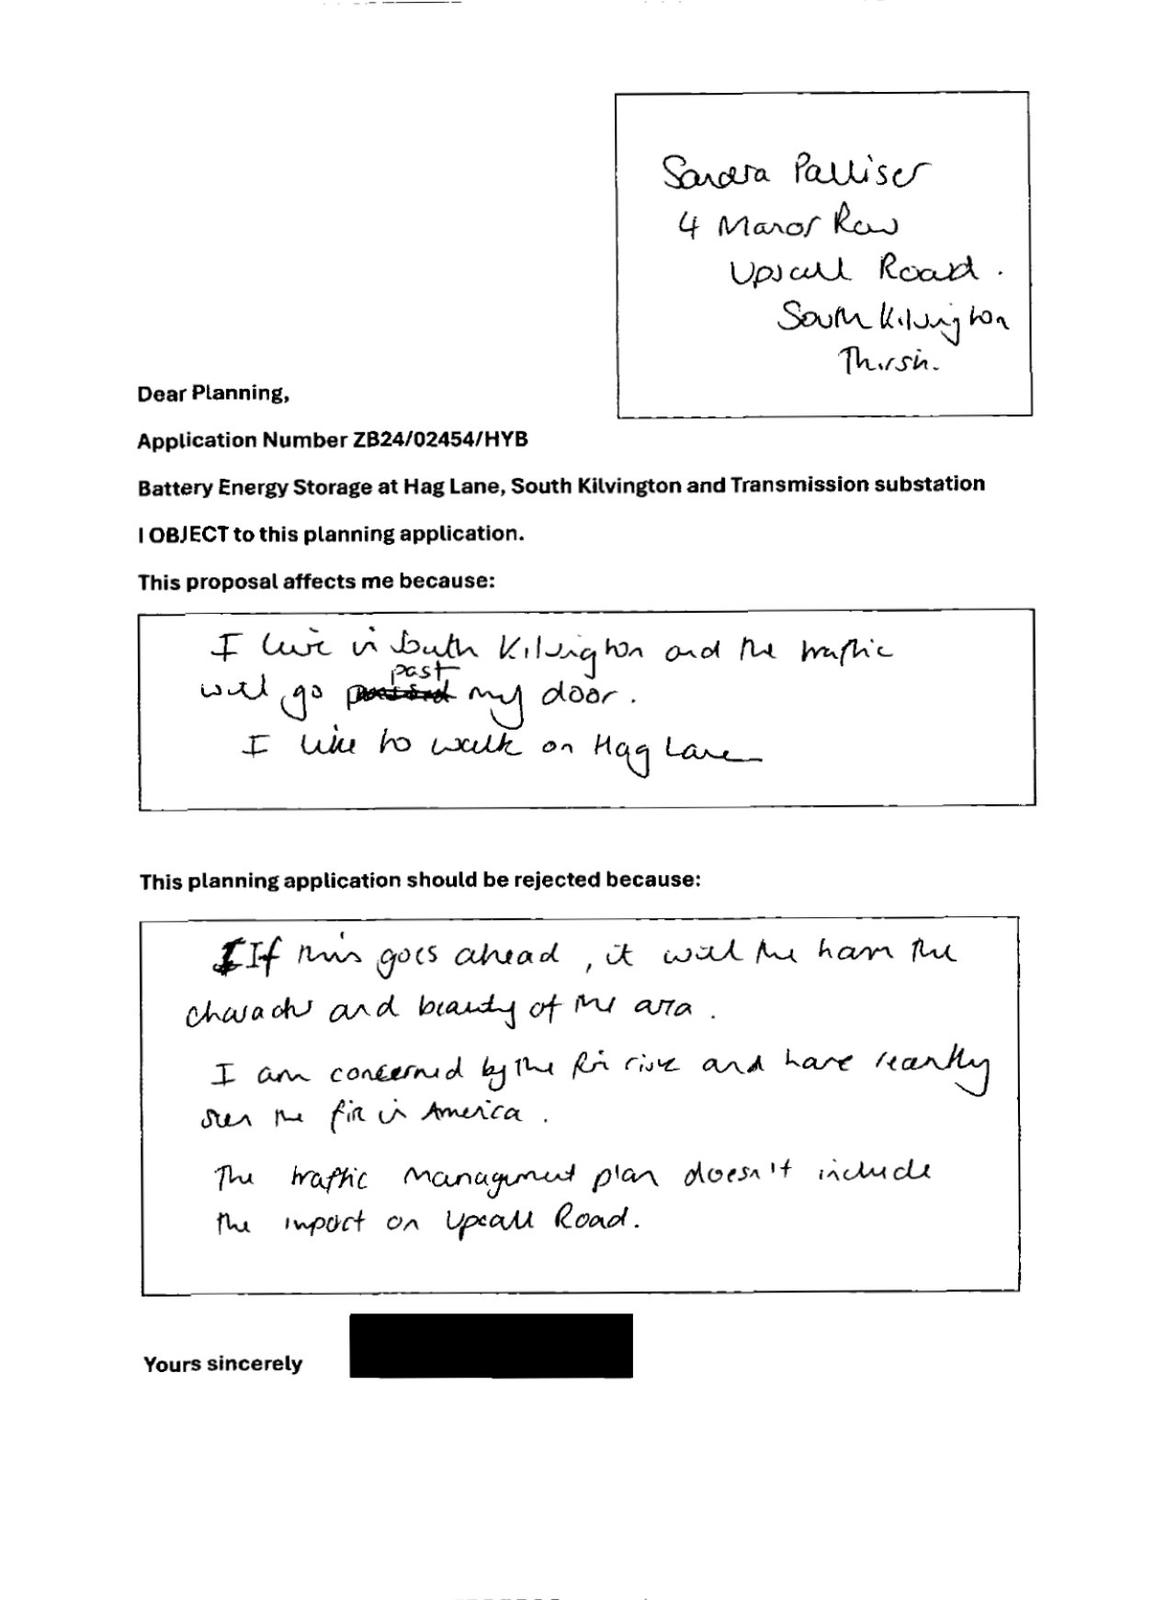 Sandra Palliser
4 Manor Row
Upsall Road.
South Kilvington
Thirsk.
Dear Planning,
Application Number ZB24/02454/HYB
Battery Energy Storage at Hag Lane, South Kilvington and Transmission substation
I OBJECT to this planning application.
This proposal affects me because:
I live in South Kilvington and the traffic
will go past my door.
I like to walk on Hag Lane
This planning application should be rejected because:
If this goes ahead, it will the harm the
character and beauty of the area.
I am concerned by the fire risk and have recently
seen the fire in America.
The traffic management plan doesn't include
the impact on Upsall Road.
Yours sincerely